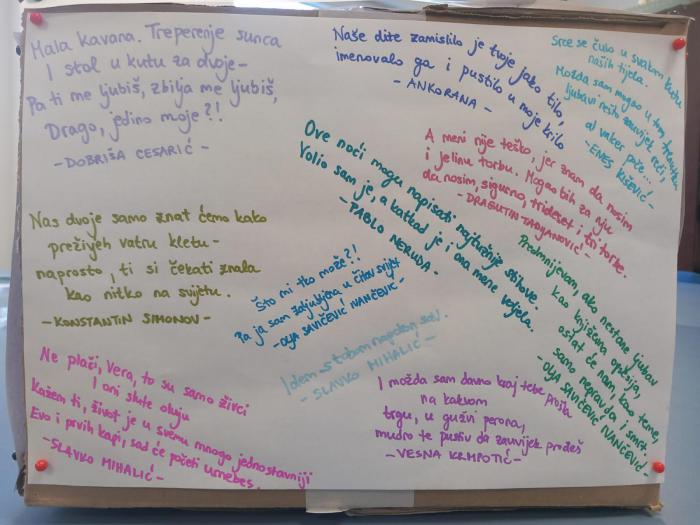 Mala kavana. Treperenje sunca
I stol u kutu za dvoje -
Pa ti me ljubiš, zbilja me ljubiš,
Drago, jedino moje?!
- DOBRIŠA CESARIĆ -
Naše dite zamislilo je tvoje jako tilo,
imenovalo ga i pustilo u moje krilo
- ANKORANA -
Srce se čulo u svakom kutku
naših tijela.
Možda sam mogao u tom trenutku
ljubavi reći zauvijek reći,
al vakat proće...
- ENES KIŠEVIĆ -
A meni nije teško, jer znam da nosim
i Jelinu torbu. Mogao bih za nju
da nosim, sigurno, trideset i tri torbe.
- DRAGUTIN TADIJANOVIĆ -
Ove noći mogu napisati najtužnije stihove.
Volio sam je, a katkad je i ona mene voljela.
- PABLO NERUDA -
Nas dvoje samo znat ćemo kako
preživjeh vatru kletu -
naprosto, ti si čekati znala
kao nitko na svijetu.
- KONSTANTIN SIMONOV -
Što mi tko može?!
Pa ja sam zaljubljena u čitav svijet
- OLJA SAVIČEVIĆ IVANČEVIĆ -
Predmnijevam, ako nestane ljubav
kao književna opsesija,
ostat će nam, kao teme,
samo nepravda i smrt.
- OLJA SAVIČEVIĆ IVANČEVIĆ -
Idem s tobom napokon sav.
- SLAVKO MIHALIĆ -
Ne plači, Vera, to su samo živci
I oni slute oluju
Kažem ti, život je u svemu mnogo jednostavniji
Evo i prvih kapi, sad će početi urnebes.
- SLAVKO MIHALIĆ -
I možda sam davno kraj tebe prošla
na kakvom
trgu, u gužvi perona,
mudro te pustiv da zauvijek prođeš
- VESNA KRMPOTIĆ -